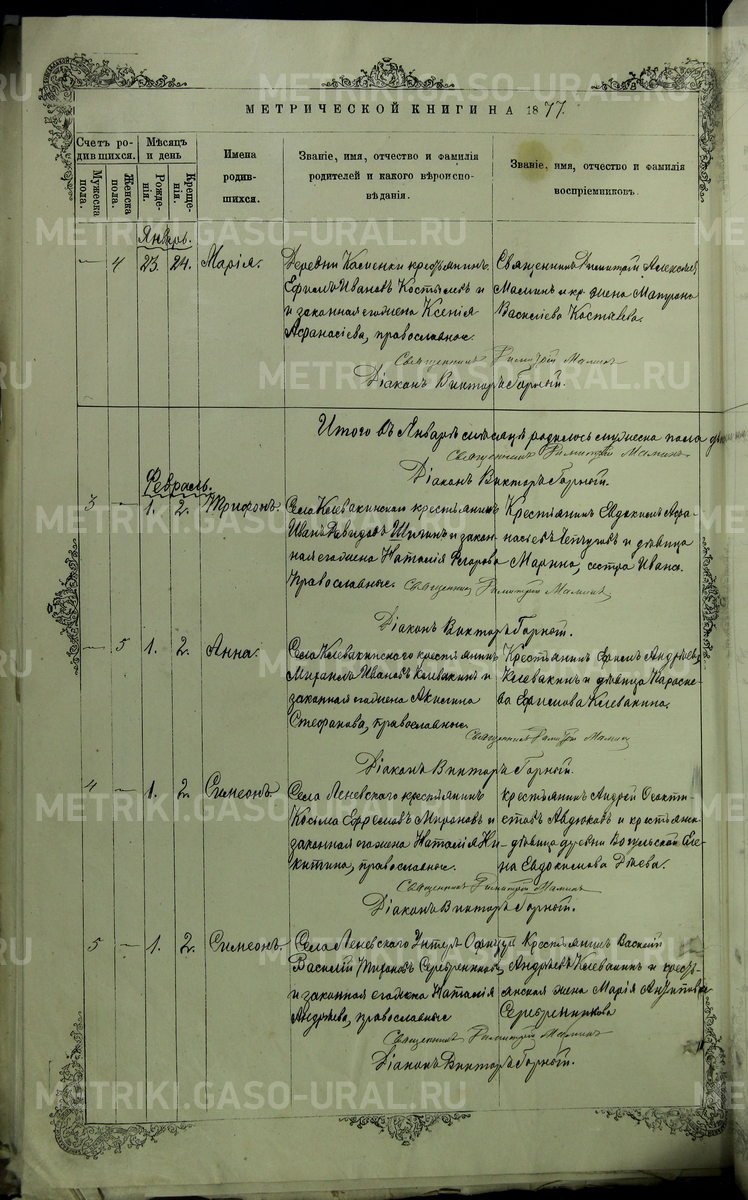 МЕТРИЧЕСКОЙ КНИГИ НА 1877.
Счетъ родившихся.
Мужеска пола.
Женска пола.
Мѣсяцъ и день
Рожденія.
Крещенія.
Имена родившихся.
Званіе, имя, отчество и фамилія родителей и какого вѣроисповѣданія.
Званіе, имя, отчество и фамилія воспріемниковъ.
Январь.
— 4 23. 24. Марія.
Деревни крестьянинъ
Ефимъ Ивановъ и
и законная его жена Ксенія
Афанасіева, православные.
Священникъ Димитрій Алексѣевъ
Маминъ и кр. жена Матрона
Василіева
Священникъ Димитрій Маминъ
Діаконъ Викторъ Горный.
Итого въ Январѣ мѣсяцѣ родилось мужеска пола
Священникъ Димитрій Маминъ
Діаконъ Викторъ Горный.
Февраль.
3 — 1. 2. Трифонъ.
Села Клевакинскаго крестьянинъ
Иванъ Давидовъ и закон-
ная его жена Наталія Егорова
Православные.
Крестьянинъ Евдокимъ Афа-
насьевъ Чепчуговъ и дѣвица
Марина, сестра Ивана.
Священникъ Димитрій Маминъ
Діаконъ Викторъ Горный.
— 5 1. 2. Анна.
Села Клевакинскаго крестьянинъ
Михаилъ Ивановъ Клевакинъ и
законная его жена Акилина
Стефанова, православные.
Крестьянинъ Ефимъ Андреевъ
Клевакинъ и дѣвица Параске-
ва Ефимова Клевакина.
Священникъ Димитрій Маминъ
Діаконъ Викторъ Горный.
4 — 1. 2. Симеонъ.
Села Леневскаго крестьянинъ
Косьма Ефремовъ Мироновъ и
законная его жена Наталія Ни-
китина, православные.
крестьянинъ Андрей Феокти-
стовъ Авдюковъ и крестьянск.
дѣвица деревни Вогульской Еле-
на Евдокимова Діева.
Священникъ Димитрій Маминъ
Діаконъ Викторъ Горный.
5 — 1. 2. Симеонъ.
Села Леневскаго Унтеръ Офицеръ
Василій Тироновъ Серебренниковъ,
и законная его жена Наталія
Андреева, православные
Крестьянинъ Василій
Андреевъ Клевакинъ и кресть-
янская жена Марія
Серебренникова
Священникъ Димитрій Маминъ
Діаконъ Викторъ Горный.
METRIKI.GASO-URAL.RU